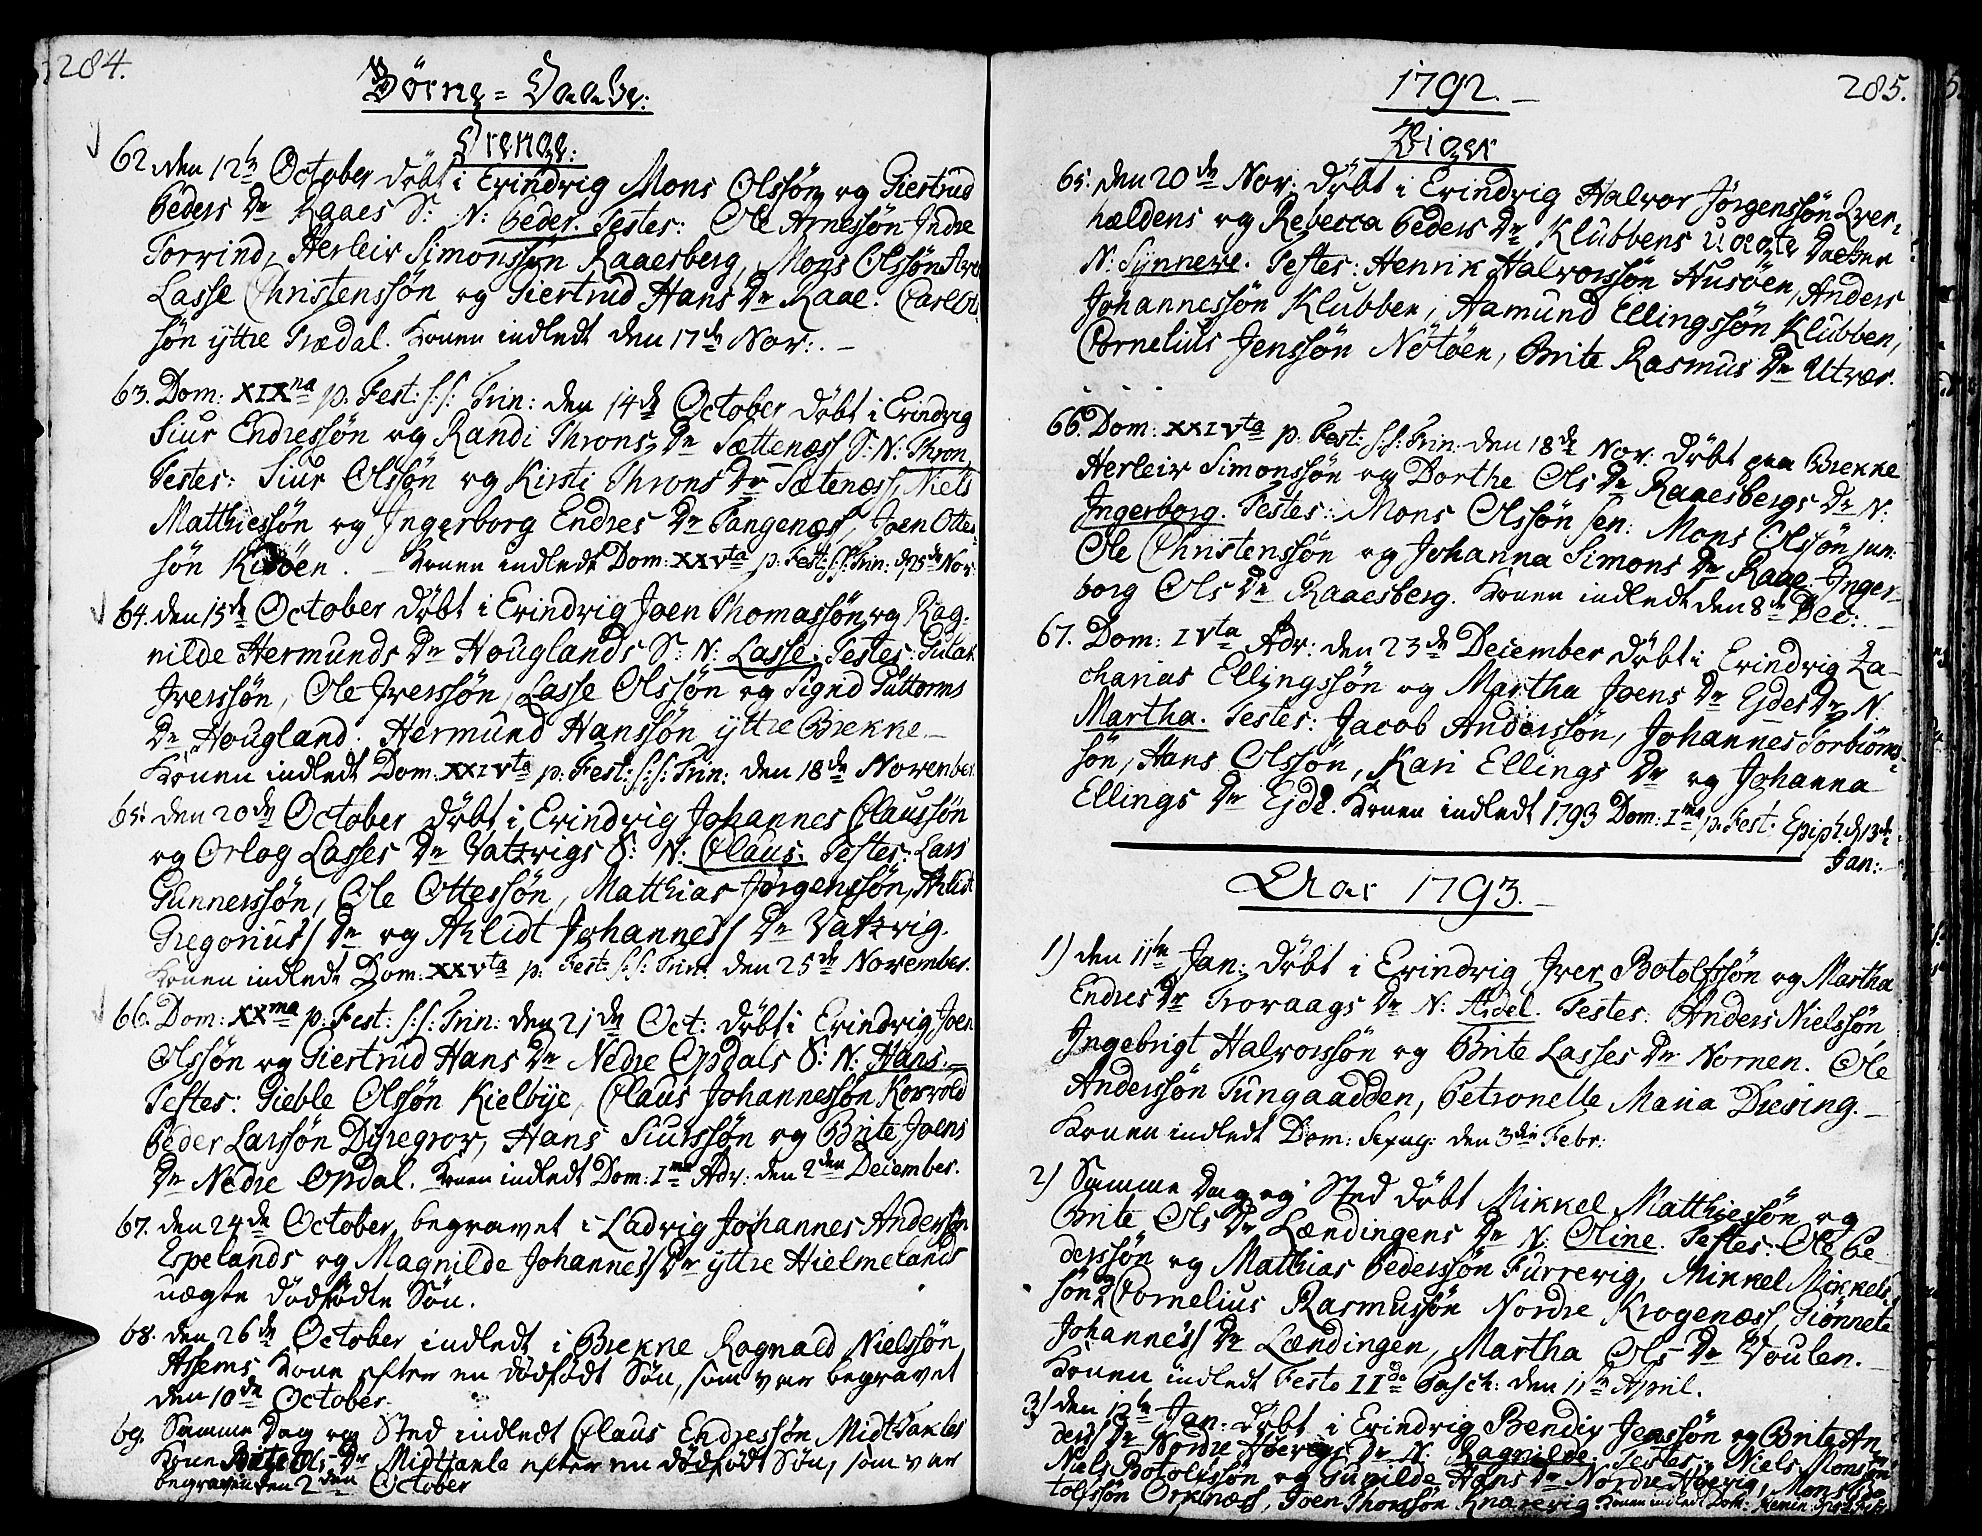 284.
Börne=Daabe:
Drenge:
62. den 12te October döbt i Evindvig Mons Olssön og Giertrud
Peders Dr Raaes S: N: Peder. Testes: Ole Arnessön Indre
Torvind, Herleiv Simonssön Raaesberg, Mons Olssön
Lasse Christenssön og Giertrud Hans Dr Raae. Carl Ols
sön yttre Trædal. Konen indledt den 17de Nov:.
63. Dom: XIXna p: Fest: s:s: Trin: den 14de October döbt i Evindvig
Siur Endressön og Randi Throns Dr Sættenæss S: N: Thron
Testes: Siur Olssön og Kirsti Throns Dr Sætenæss, Niels
Matthiessön og Ingerborg Endres Dr Tangenæss, Joen Ottes-
sön Kidöen. Konen indledt Dom: XXVta p: Fest: s:s: Trin: d. 25de Nov:
64. den 15de October döbt i Evindvig Joen Thomassön og Rag-
nilde Hermunds Dr Houglands S: N: Lasse. Testes: Gulak
Iverssön, Ole Iverssön, Lasse Olssön og Sigrid Guttorms
Dr Hougland. Hermund Hanssön yttre Brekke.
Konen indledt Dom: XXIVta p: Fest: s:s: Trin: den 18de November.
65. den 20de October döbt i Evindvig Johannes Claussön
og Orlog Lasses Dr Vatzvigs S: N: Claus. Testes: Lars
Gunnerssön, Ole Ottessön, Matthias Jörgenssön, Ahlidt
Gregorius's Dr og Ahlidt Johannes's Dr Vatzvig.
Konen indledt Dom: XXVta p: Fest: s:s: Trin: den 25de November.
66. Dom: XXma p: Fest: s:s: Trin: den 21de Oct: döbt i Evindvig Joen
Olssön og Giertrud Hans Dr Nedre Opdals S: N: Hans.
Testes: Gieble Olssön Kielbye, Claus Johannessön Korvold
Peder Larssön Dyregrov, Hans Siurssön og Brite Joens
Dr Nedre Opdal. Konen indledt Dom: Ima Adv: den 2den December.
67. den 24de October begravet i Ladvig Johannes Anderssön
Espelands og Magnilde Johannes's Dr yttre Hielmelands
uægte dödfödte Sön.
68. den 26de October indledt i Brekke Ragnald Nielssön
Assems Kone efter en dödfödt Sön, som var begravet
den 10de October.
69. Samme Dag og Sted indledt Claus Endressön Midttanles
Kone Brite Ols Dr Midttanle efter en dödfödt Sön, som var
begraven den 2den October
1792.
285.
Piger
65. den 20de Nov: döbt i Evindvig Halvor Jörgenssön Qver-
hældens og Rebecca Peders Dr Klubbens uægte Datter
N: Synneve. Testes: Henrik Halvorssön Husöen, Anders
Johannessön Klubben, Aamund Ellingssön Klubben,
Cornelius Jenssön Nötöen, Brite Rasmus Dr Utvær.
66. Dom: XXIVta p: Fest: s:s: Trin: den 18de Nov: döbt paa Brekke
Herleiv Simonssön og Dorthe Ols Dr Raaesbergs Dr N:
Ingerborg. Testes: Mons Olssön sen: Mons Olssön jun:
Ole Christenssön og Johanna Simons Dr Raae. Inger-
borg Ols Dr Raaesberg. Konen indledt den 8de Dec:.
67. Dom: IVta Adv: den 23de December döbt i Evindvig Za-
charias Ellingssön og Martha Joens Dr Ejdes Dr N.
Martha. Testes: Jacob Anderssön, Johannes Torbiörns-
sön, Hans Olssön, Kari Ellings Dr og Johanna
Ellings Dr Ejde. Konen indledt 1793 Dom: Ima p: Fest: Epiph: d. 13de
Jan:
Aar 1793.
1) den 11te Jan: döbt i Evindvig Iver Botolfssön og Martha
Endres Dr Trovaags Dr N: Aidel. Testes: Anders Nielssön
Ingebrigt Halvorssön og Brite Lasses Dr Nornen. Ole
Anderssön Tungaadden, Petronelle Maria Dresing.
Konen indledt Dom: Sexag: den 3die Febr:
2) Samme Dag og Sted döbt Mikkel Matthiessön og
Brite Ols Dr Lændingens Dr N: Oline. Testes: Ole Pe-
derssön og Mathias Pederssön Furrevig, Mikkel Mikkels
sön Cornelius Rasmussön Nordre Krogenæss, Giönneta
Johannes's Dr Lændingen, Martha Ols Dr Voulen.
Konen indledt Festo IIdo Pasch: den 1ste April.
3) den 12te Jan: döbt i Evindvig Bendix Jenssön og Brite An-
ders Dr Nordre Höevigs Dr N: Ragnilde. Testes: Niels Monssön
Niels Botolfssön og Gunilde Hans Dr Nordre Höevig, Mons Bo-
tolfssön Orknæss, Joen Thorssön Knarevig. Konen indledt Dom: